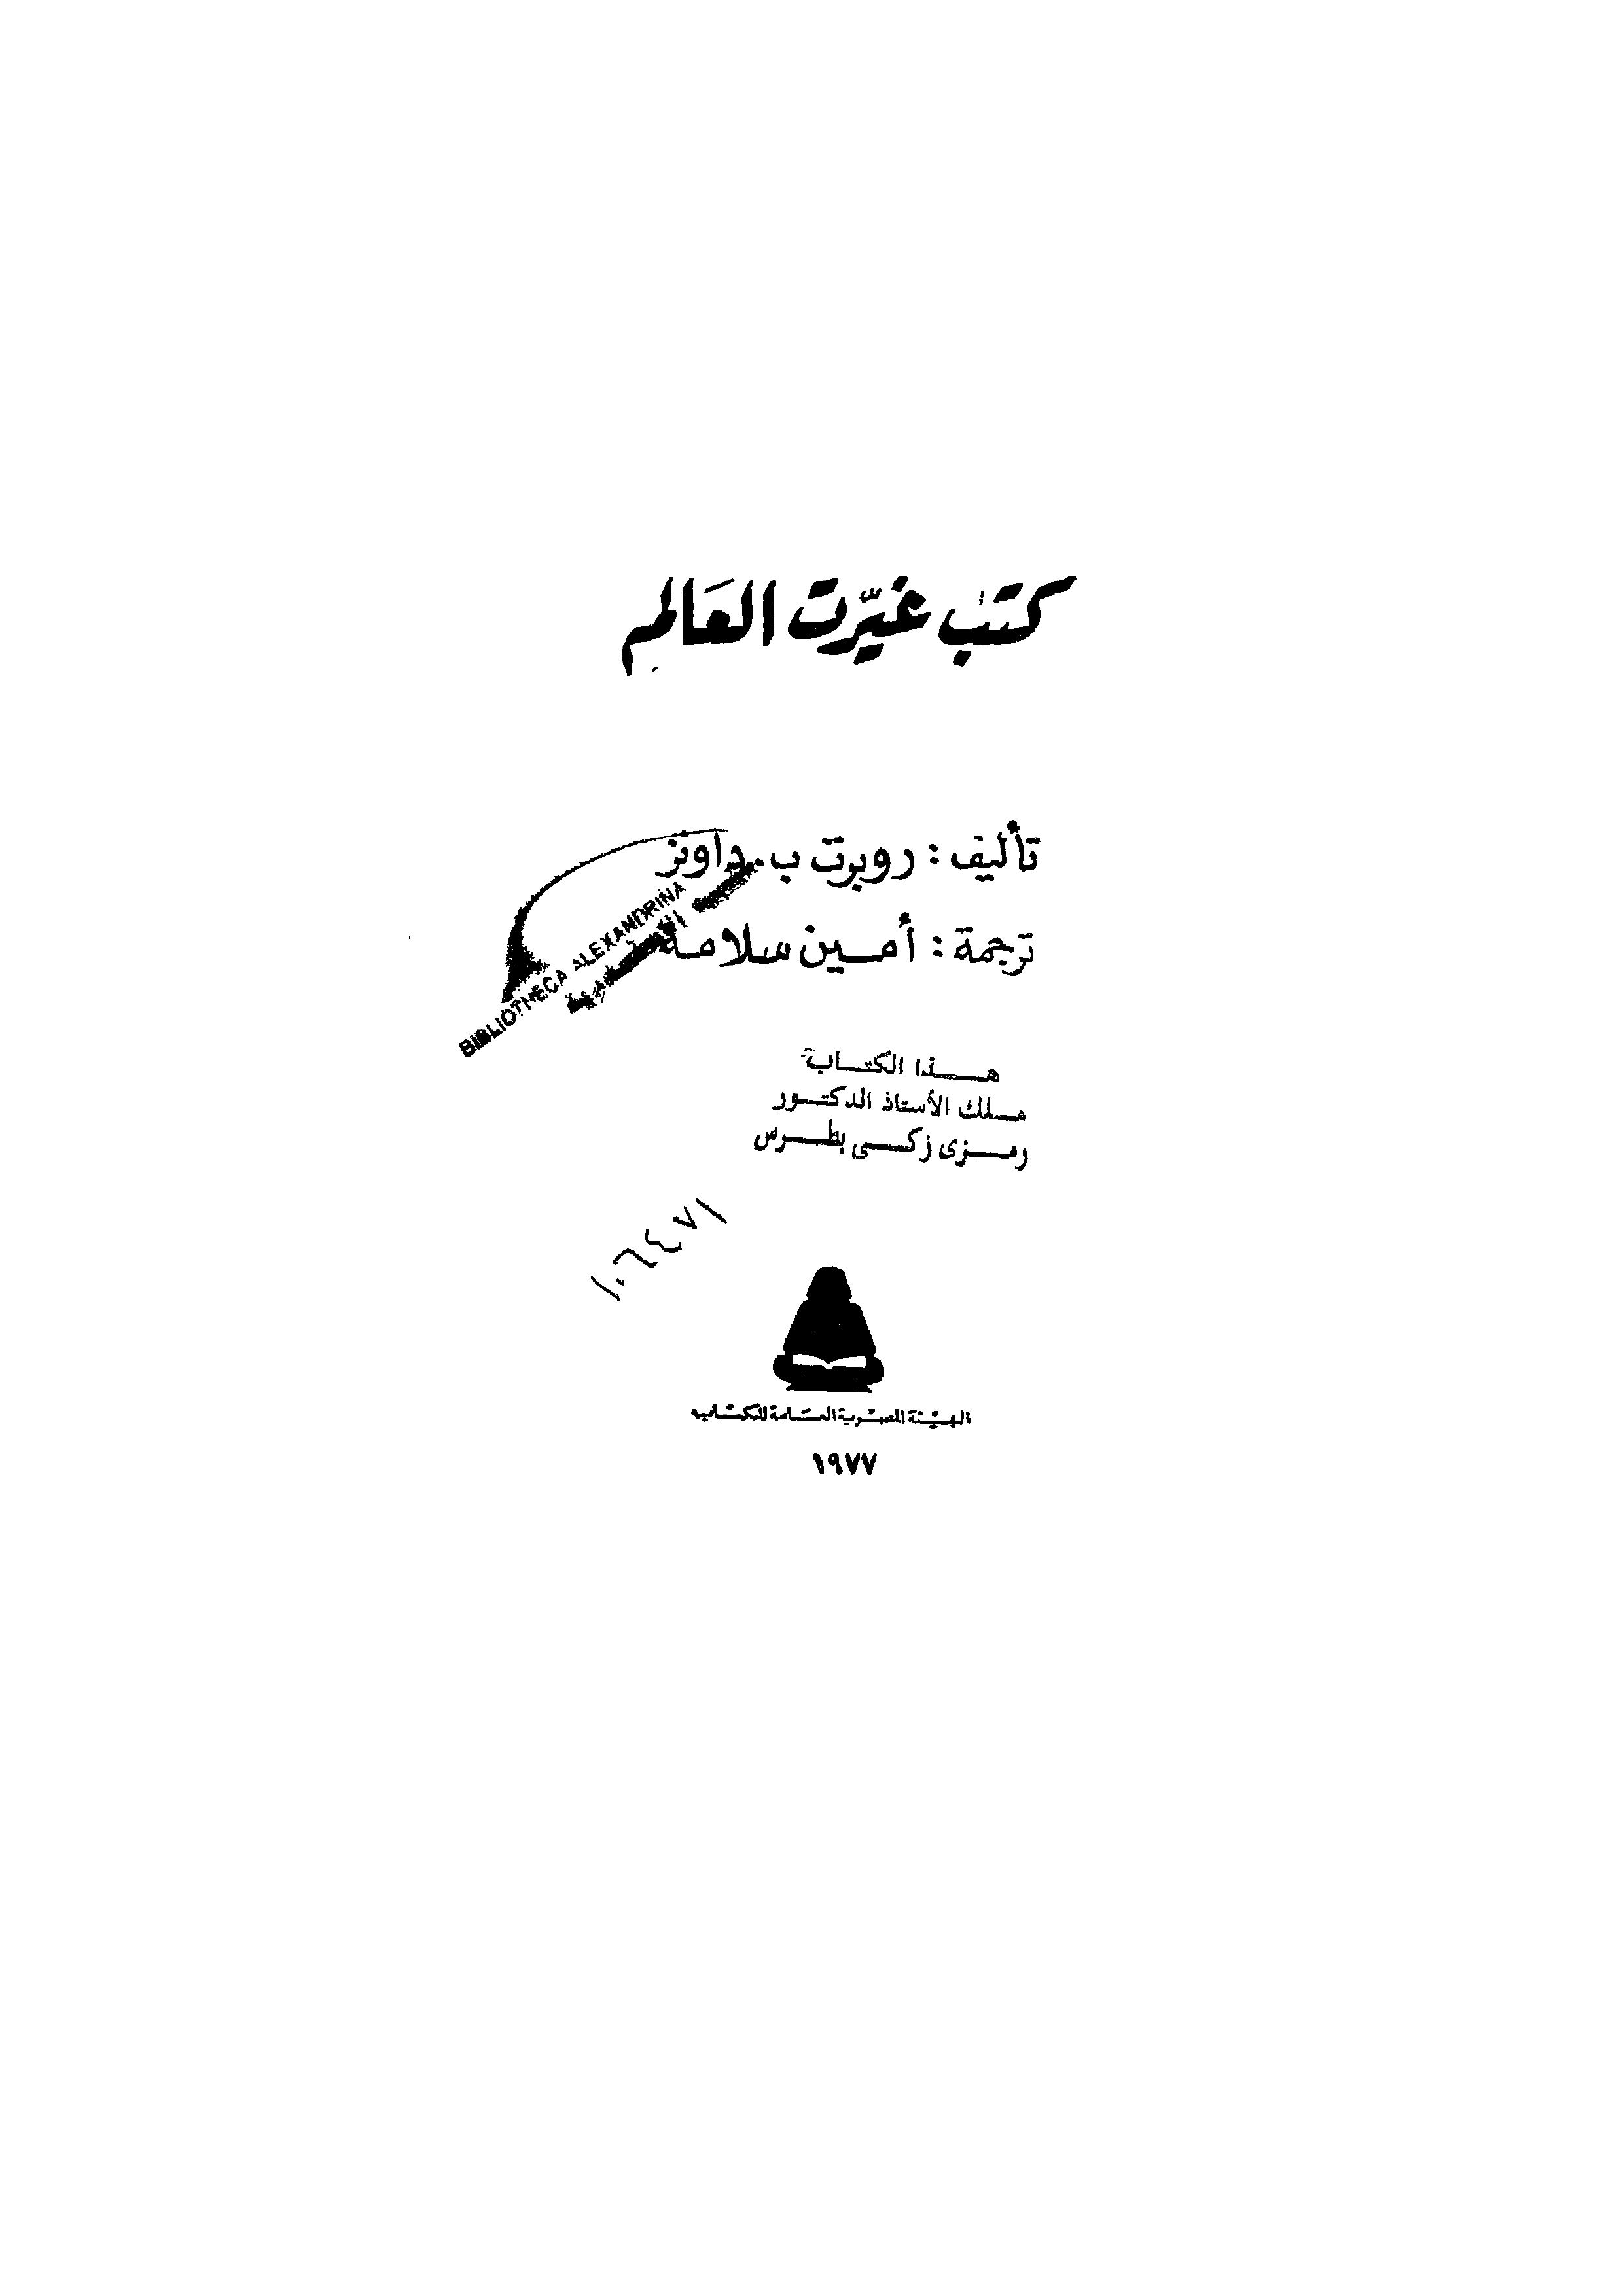 كتب غيّرت العالم
تأليف : روبرت ب. داونز
ترجمة : أمين سلامة
BIBLIOTHECA ALEXANDRINA
هذا الكتاب
ملك الأستاذ الدكتور
رمزى زكى بطرس
١٠٦٤٧١
الهيئة المصرية العامة للكتاب
١٩٧٧